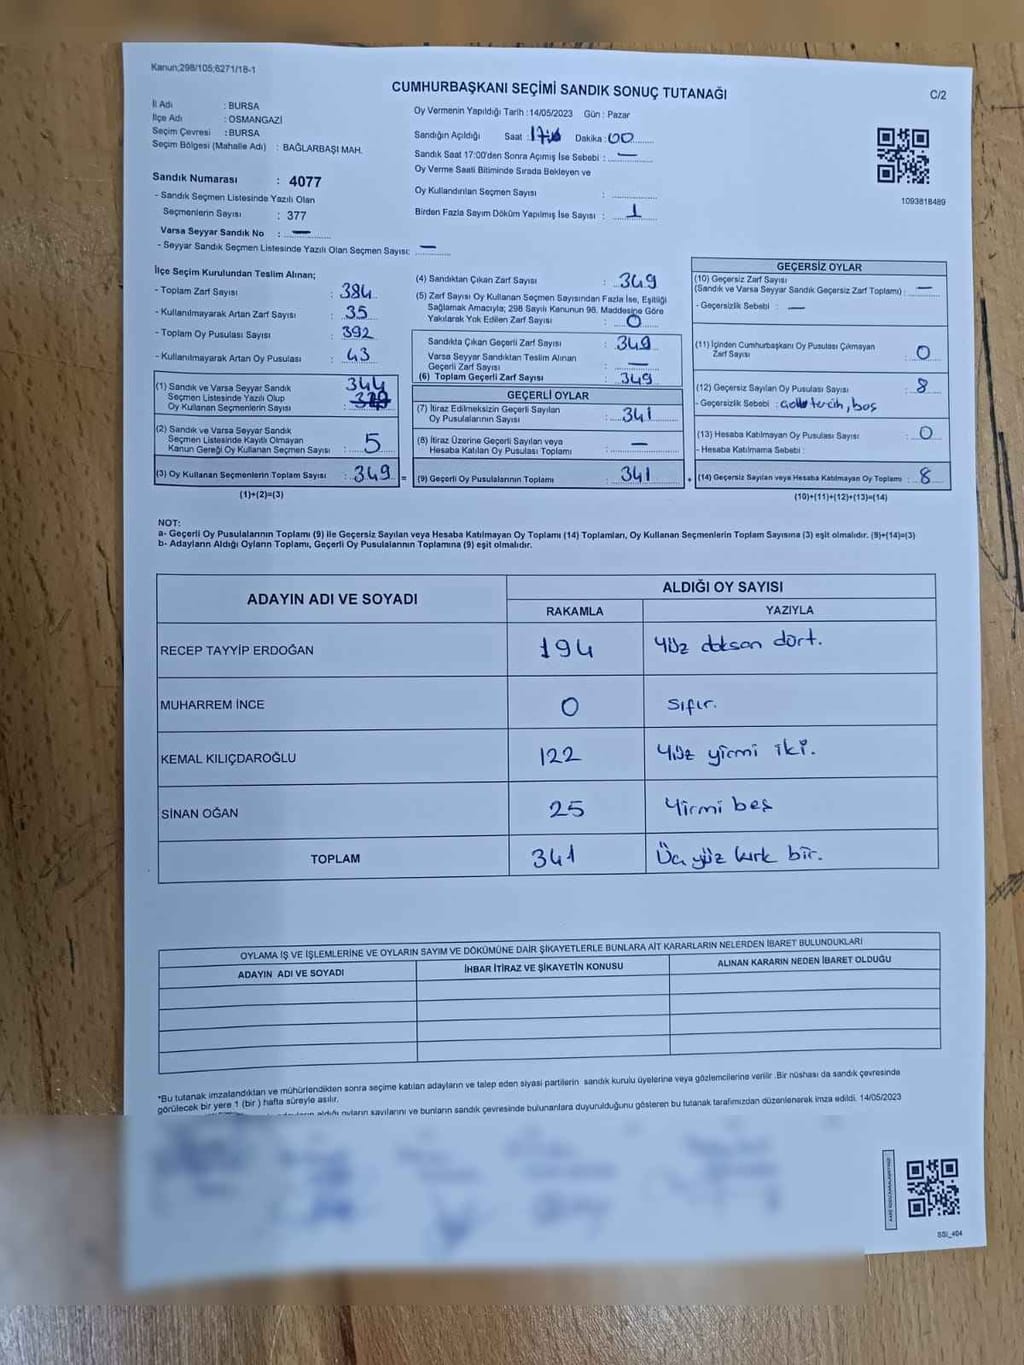 Kanun;298/105;6271/18-1
CUMHURBAŞKANI SEÇİMİ SANDIK SONUÇ TUTANAĞI
C/2
İl Adı : BURSA
İlçe Adı : OSMANGAZİ
Seçim Çevresi : BURSA
Seçim Bölgesi (Mahalle Adı) : BAĞLARBAŞI MAH.
Sandık Numarası : 4077
- Sandık Seçmen Listesinde Yazılı Olan
Seçmenlerin Sayısı : 377
Varsa Seyyar Sandık No : —
- Seyyar Sandık Seçmen Listesinde Yazılı Olan Seçmen Sayısı: —
Oy Vermenin Yapıldığı Tarih : 14/05/2023 Gün : Pazar
Sandığın Açıldığı Saat : Dakika : 00
Sandık Saat 17:00'den Sonra Açımış İse Sebebi : —
Oy Verme Saati Bitiminde Sırada Bekleyen ve
Oy Kullandırılan Seçmen Sayısı :
Birden Fazla Sayım Döküm Yapılmış İse Sayısı : 1
1093818489
İlçe Seçim Kurulundan Teslim Alınan;
- Toplam Zarf Sayısı : 384
- Kullanılmayarak Artan Zarf Sayısı : 35
- Toplam Oy Pusulası Sayısı : 392
- Kullanılmayarak Artan Oy Pusulası : 43
(1) Sandık ve Varsa Seyyar Sandık
Seçmen Listesinde Yazılı Olup
Oy Kullanan Seçmenlerin Sayısı : 344
(2) Sandık ve Varsa Seyyar Sandık
Seçmen Listesinde Kayıtlı Olmayan
Kanun Gereği Oy Kullanan Seçmen Sayısı : 5
(3) Oy Kullanan Seçmenlerin Toplam Sayısı : 349 =
(1)+(2)=(3)
(4) Sandıktan Çıkan Zarf Sayısı : 349
(5) Zarf Sayısı Oy Kullanan Seçmen Sayısından Fazla İse, Eşitliği
Sağlamak Amacıyla; 298 Sayılı Kanunun 98. Maddesine Göre
Yakılarak Yok Edilen Zarf Sayısı : 0
Sandıkta Çıkan Geçerli Zarf Sayısı : 349
Varsa Seyyar Sandıktan Teslim Alınan
Geçerli Zarf Sayısı :
(6) Toplam Geçerli Zarf Sayısı : 349
GEÇERLİ OYLAR
(7) İtiraz Edilmeksizin Geçerli Sayılan
Oy Pusulalarının Sayısı : 341
(8) İtiraz Üzerine Geçerli Sayılan veya
Hesaba Katılan Oy Pusulası Toplamı : —
(9) Geçerli Oy Pusulalarının Toplamı : 341 +
GEÇERSİZ OYLAR
(10) Geçersiz Zarf Sayısı
(Sandık ve Varsa Seyyar Sandık Geçersiz Zarf Toplamı) : —
- Geçersizlik Sebebi : —
(11) İçinden Cumhurbaşkanı Oy Pusulası Çıkmayan
Zarf Sayısı : 0
(12) Geçersiz Sayılan Oy Pusulası Sayısı : 8
- Geçersizlik Sebebi : tercih, boş
(13) Hesaba Katılmayan Oy Pusulası Sayısı : 0
- Hesaba Katılmama Sebebi :
(14) Geçersiz Sayılan veya Hesaba Katılmayan Oy Toplamı : 8
(10)+(11)+(12)+(13)=(14)
NOT:
a- Geçerli Oy Pusulalarının Toplamı (9) ile Geçersiz Sayılan veya Hesaba Katılmayan Oy Toplamı (14) Toplamları, Oy Kullanan Seçmenlerin Toplam Sayısına (3) eşit olmalıdır. (9)+(14)=(3)
b- Adayların Aldığı Oyların Toplamı, Geçerli Oy Pusulalarının Toplamına (9) eşit olmalıdır.
ADAYIN ADI VE SOYADI
ALDIĞI OY SAYISI
RAKAMLA YAZIYLA
RECEP TAYYİP ERDOĞAN 194 Yüz doksan dört.
MUHARREM İNCE 0 Sıfır.
KEMAL KILIÇDAROĞLU 122 Yüz yirmi iki.
SİNAN OĞAN 25 Yirmi beş
TOPLAM 341 Üç yüz kırk bir.
OYLAMA İŞ VE İŞLEMLERİNE VE OYLARIN SAYIM VE DÖKÜMÜNE DAİR ŞİKAYETLERLE BUNLARA AİT KARARLARIN NELERDEN İBARET BULUNDUKLARI
ADAYIN ADI VE SOYADI İHBAR İTİRAZ VE ŞİKAYETİN KONUSU ALINAN KARARIN NEDEN İBARET OLDUĞU
*Bu tutanak imzalandıktan ve mühürlendikten sonra seçime katılan adayların ve talep eden siyasi partilerin sandık kurulu üyelerine veya gözlemcilerine verilir .Bir nüshası da sandık çevresinde
görülecek bir yere 1 (bir ) hafta süreyle asılır.
aldığı oyların sayılarını ve bunların sandık çevresinde bulunanlara duyurulduğunu gösteren bu tutanak tarafımızdan düzenlenerek imza edildi. 14/05/2023
SSI_404